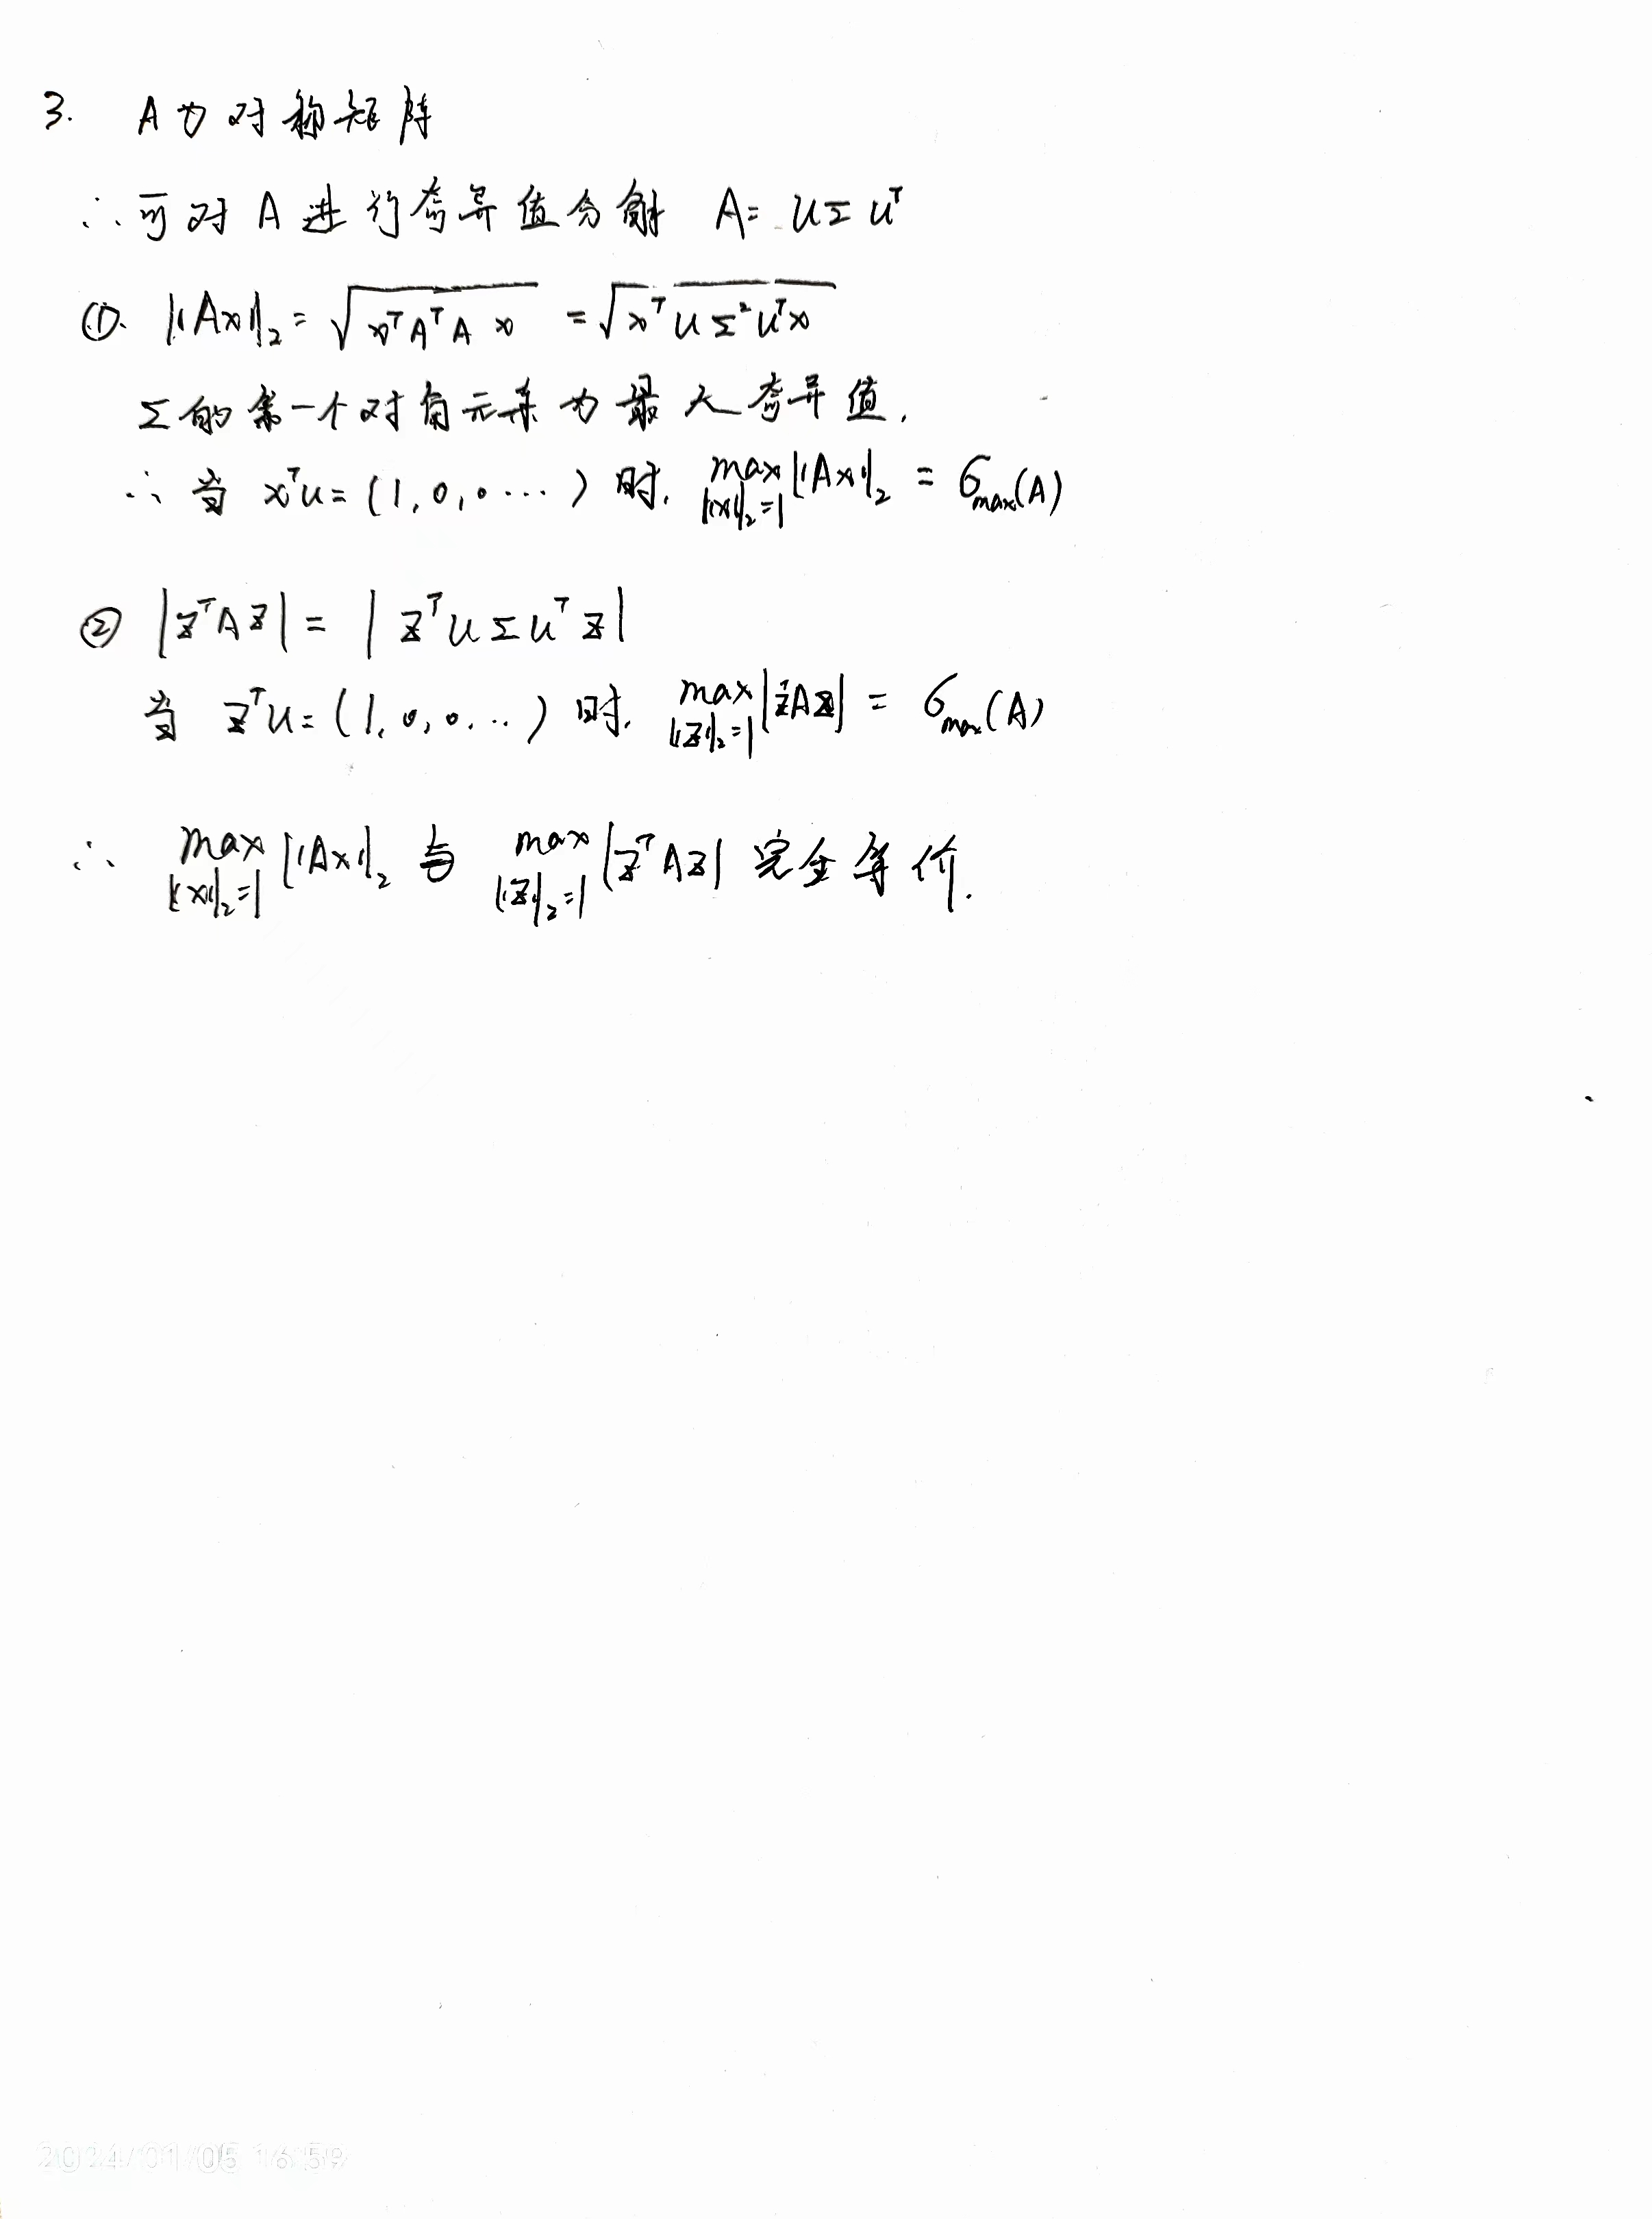 3. A为对称矩阵
∴可对A进行奇异值分解 A= UΣU^T
①. ||Ax||₂ = √(x^T A^T A x) = √(x^T U Σ² U^T x)
Σ的第一个对角元素为最大奇异值.
∴ 当 x^T U = (1, 0, 0 ⋯ ) 时. max_{||x||₂=1} ||Ax||₂ = σ_max(A)
② |z^T A z| = | z^T U Σ U^T z |
当 z^T U = (1, 0, 0, ⋯ ) 时. max_{||z||₂=1} |z^T A z| = σ_max(A)
∴ max_{||x||₂=1} ||Ax||₂ 与 max_{||z||₂=1} |z^T A z| 完全等价.
2024/01/05 16:59